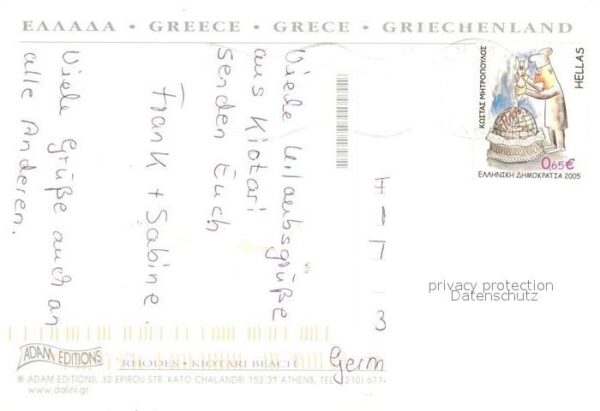 ΕΛΛΑΔΑ • GREECE • GRECE • GRIECHENLAND
Viele Urlaubsgrüße
aus Kiotari
senden Euch
Frank + Sabine.
Viele Grüße auch an
alle Anderen.
ΚΩΣΤΑΣ ΜΗΤΡΟΠΟΥΛΟΣ
HELLAS
0,65€
ΕΛΛΗΝΙΚΗ ΔΗΜΟΚΡΑΤΙΑ 2005
privacy protection
Datenschutz
Germ
ADAM EDITIONS
RHODES - KIOTARI BEACH
® ADAM EDITIONS, 32 EPIROU STR. KATO CHALANDRI 152 31 ATHENS, TEL. (210) 677
www.dalini.gr